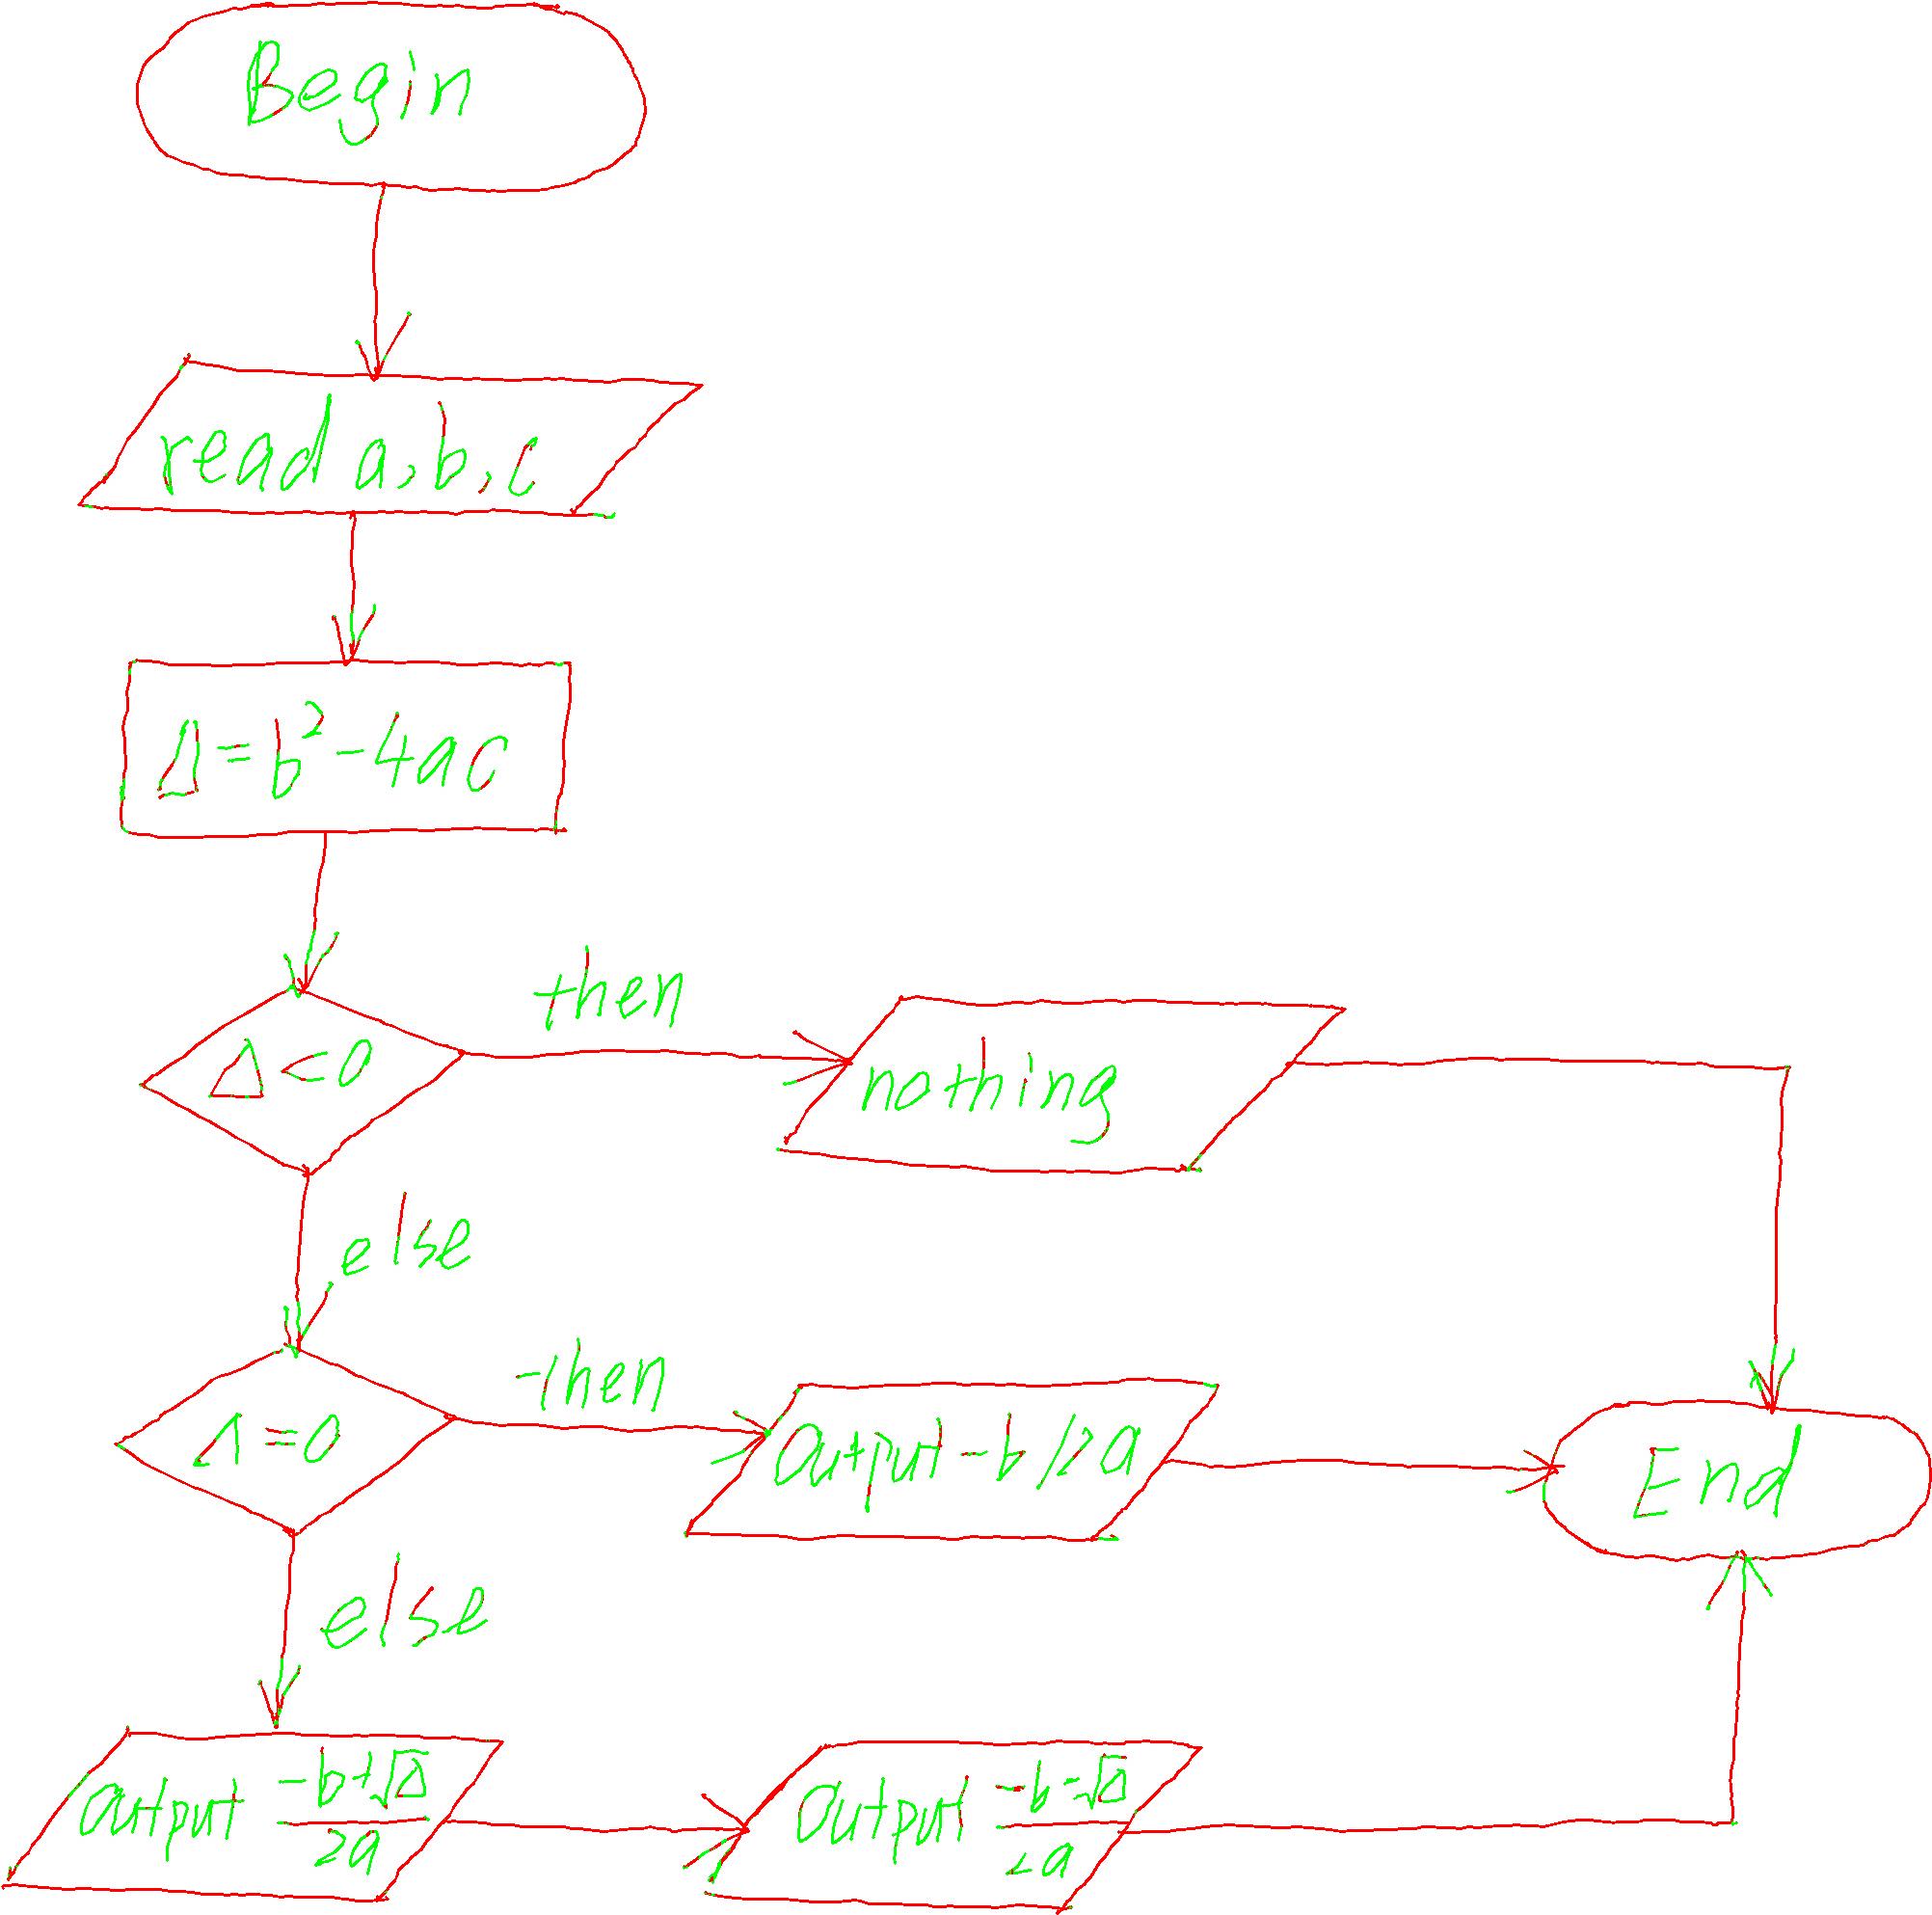 Begin
read a,b,c
Δ=b²-4ac
then
Δ<0
nothing
else
then
Δ=0
Output -b/2a
End
else
output (-b+√Δ)/2a
Output (-b-√Δ)/2a